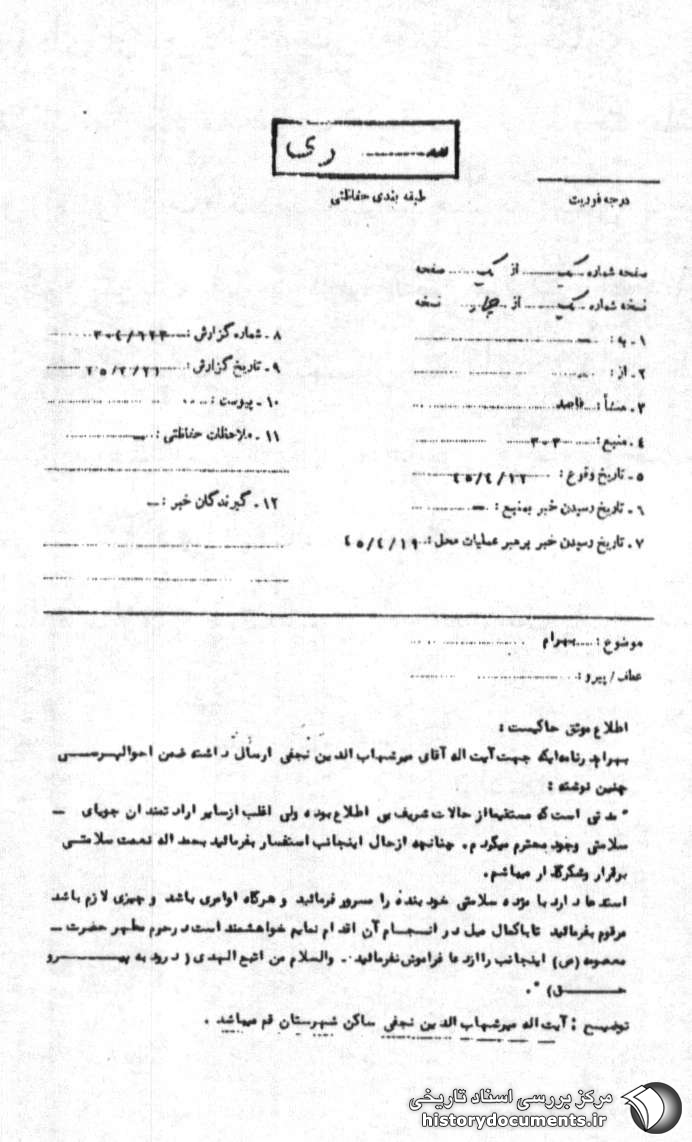 سری
طبقه بندی حفاظتی
درجه فوریت
صفحه شماره یک از یک صفحه
نسخه شماره یک از چهار نسخه
۱ـ به :
۲ـ از :
۳ـ منشأ : قاصد
۴ـ منبع : ۳۰۳
۵ـ تاریخ وقوع : ۴۵/۴/۱۲
۶ـ تاریخ رسیدن خبر بمنبع :
۷ـ تاریخ رسیدن خبر برهبر عملیات محل : ۴۵/۴/۱۹
۸ـ شماره گزارش :
۹ـ تاریخ گزارش :
۱۰ـ پیوست :
۱۱ـ ملاحظات حفاظتی :
۱۲ـ گیرندگان خبر :
موضوع : بهرام
عطف / پیرو :
اطلاع موثق حاکیست :
بهرام در نامه‌ایکه جهت آیت اله آقای میرشهاب الدین نجفی ارسال داشته ضمن احوالپرسی
چنین نوشته :
" مدتی است که مستقیما از حالات شریف بی اطلاع بوده ولی اغلب از سایر ارادتمندان جویای
سلامتی وجود محترم میگردم . چنانچه ازحال اینجانب استفسار بفرمائید بحمد اله نعمت سلامتی
برقرار وشکرگذار میباشم .
استدعا دارد با مژده سلامتی خود بنده را مسرور فرمائید و هرگاه اوامری باشد و چیزی لازم باشد
مرقوم بفرمائید تا باکمال میل در انجام آن اقدام نمایم خواهشمند است در حرم مطهر حضرت
معصومه (ص) اینجانب را از دعا فراموش نفرمائید . والسلام من اتبع الهدی ( درود به پیرو
حق ) " .
توضیح : آیت اله میرشهاب الدین نجفی ساکن شهرستان قم میباشد .
مرکز بررسی اسناد تاریخی
historydocuments.ir